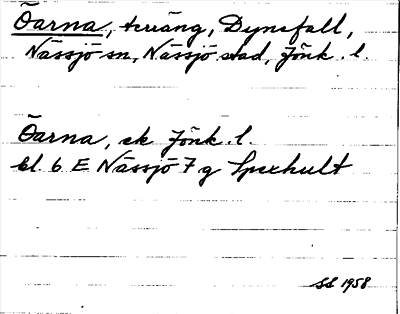 Öarna, terräng, Dynefall,
Nässjö sn, Nässjö stad, Jönk. l.
Öarna, ek Jönk. l.
bl. 6 E Nässjö 7 g Spexhult
SS 1958